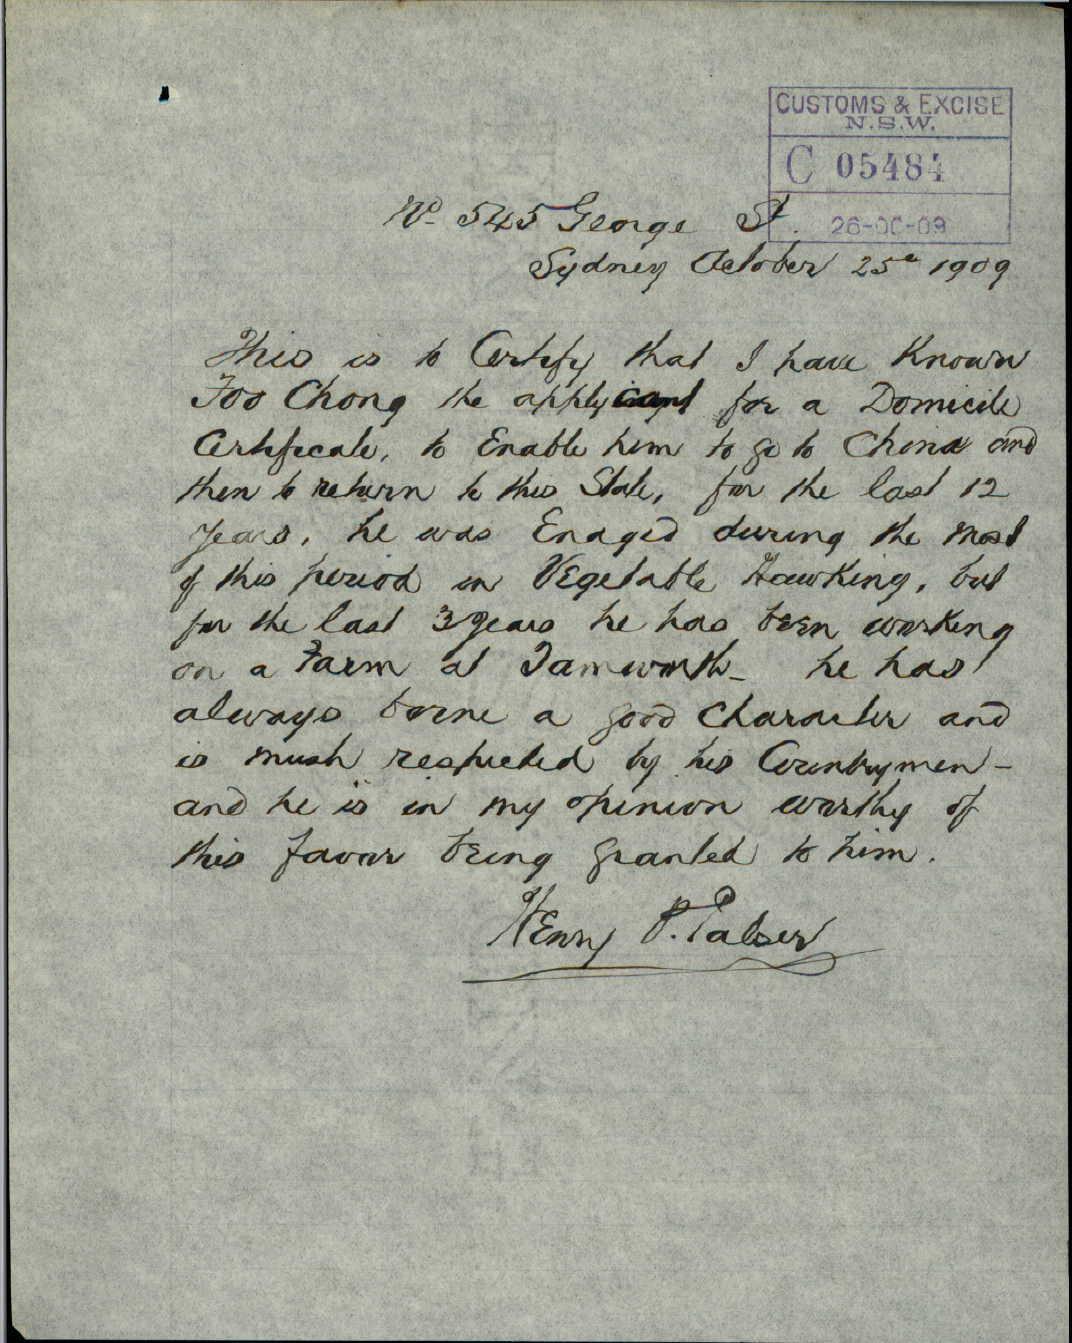 CUSTOMS & EXCISE
N.S.W.
C 05484
26-OC-09
No 545 George St.
Sydney October 25th 1909
This is to Certify that I have Known
Foo Chong the applycant for a Domicile
Certificate, to Enable him to go to China and
then to return to this State, for the last 12
years, he was Enaged during the most
of this period in Vegetable Hawking, but
for the last 3 years he has been working
on a Farm at Tamworth_ he has
always borne a good Character and
is much respected by his Countrymen –
and he is in my opinion worthy of
this favor being granted to him.
Henry P. Palser